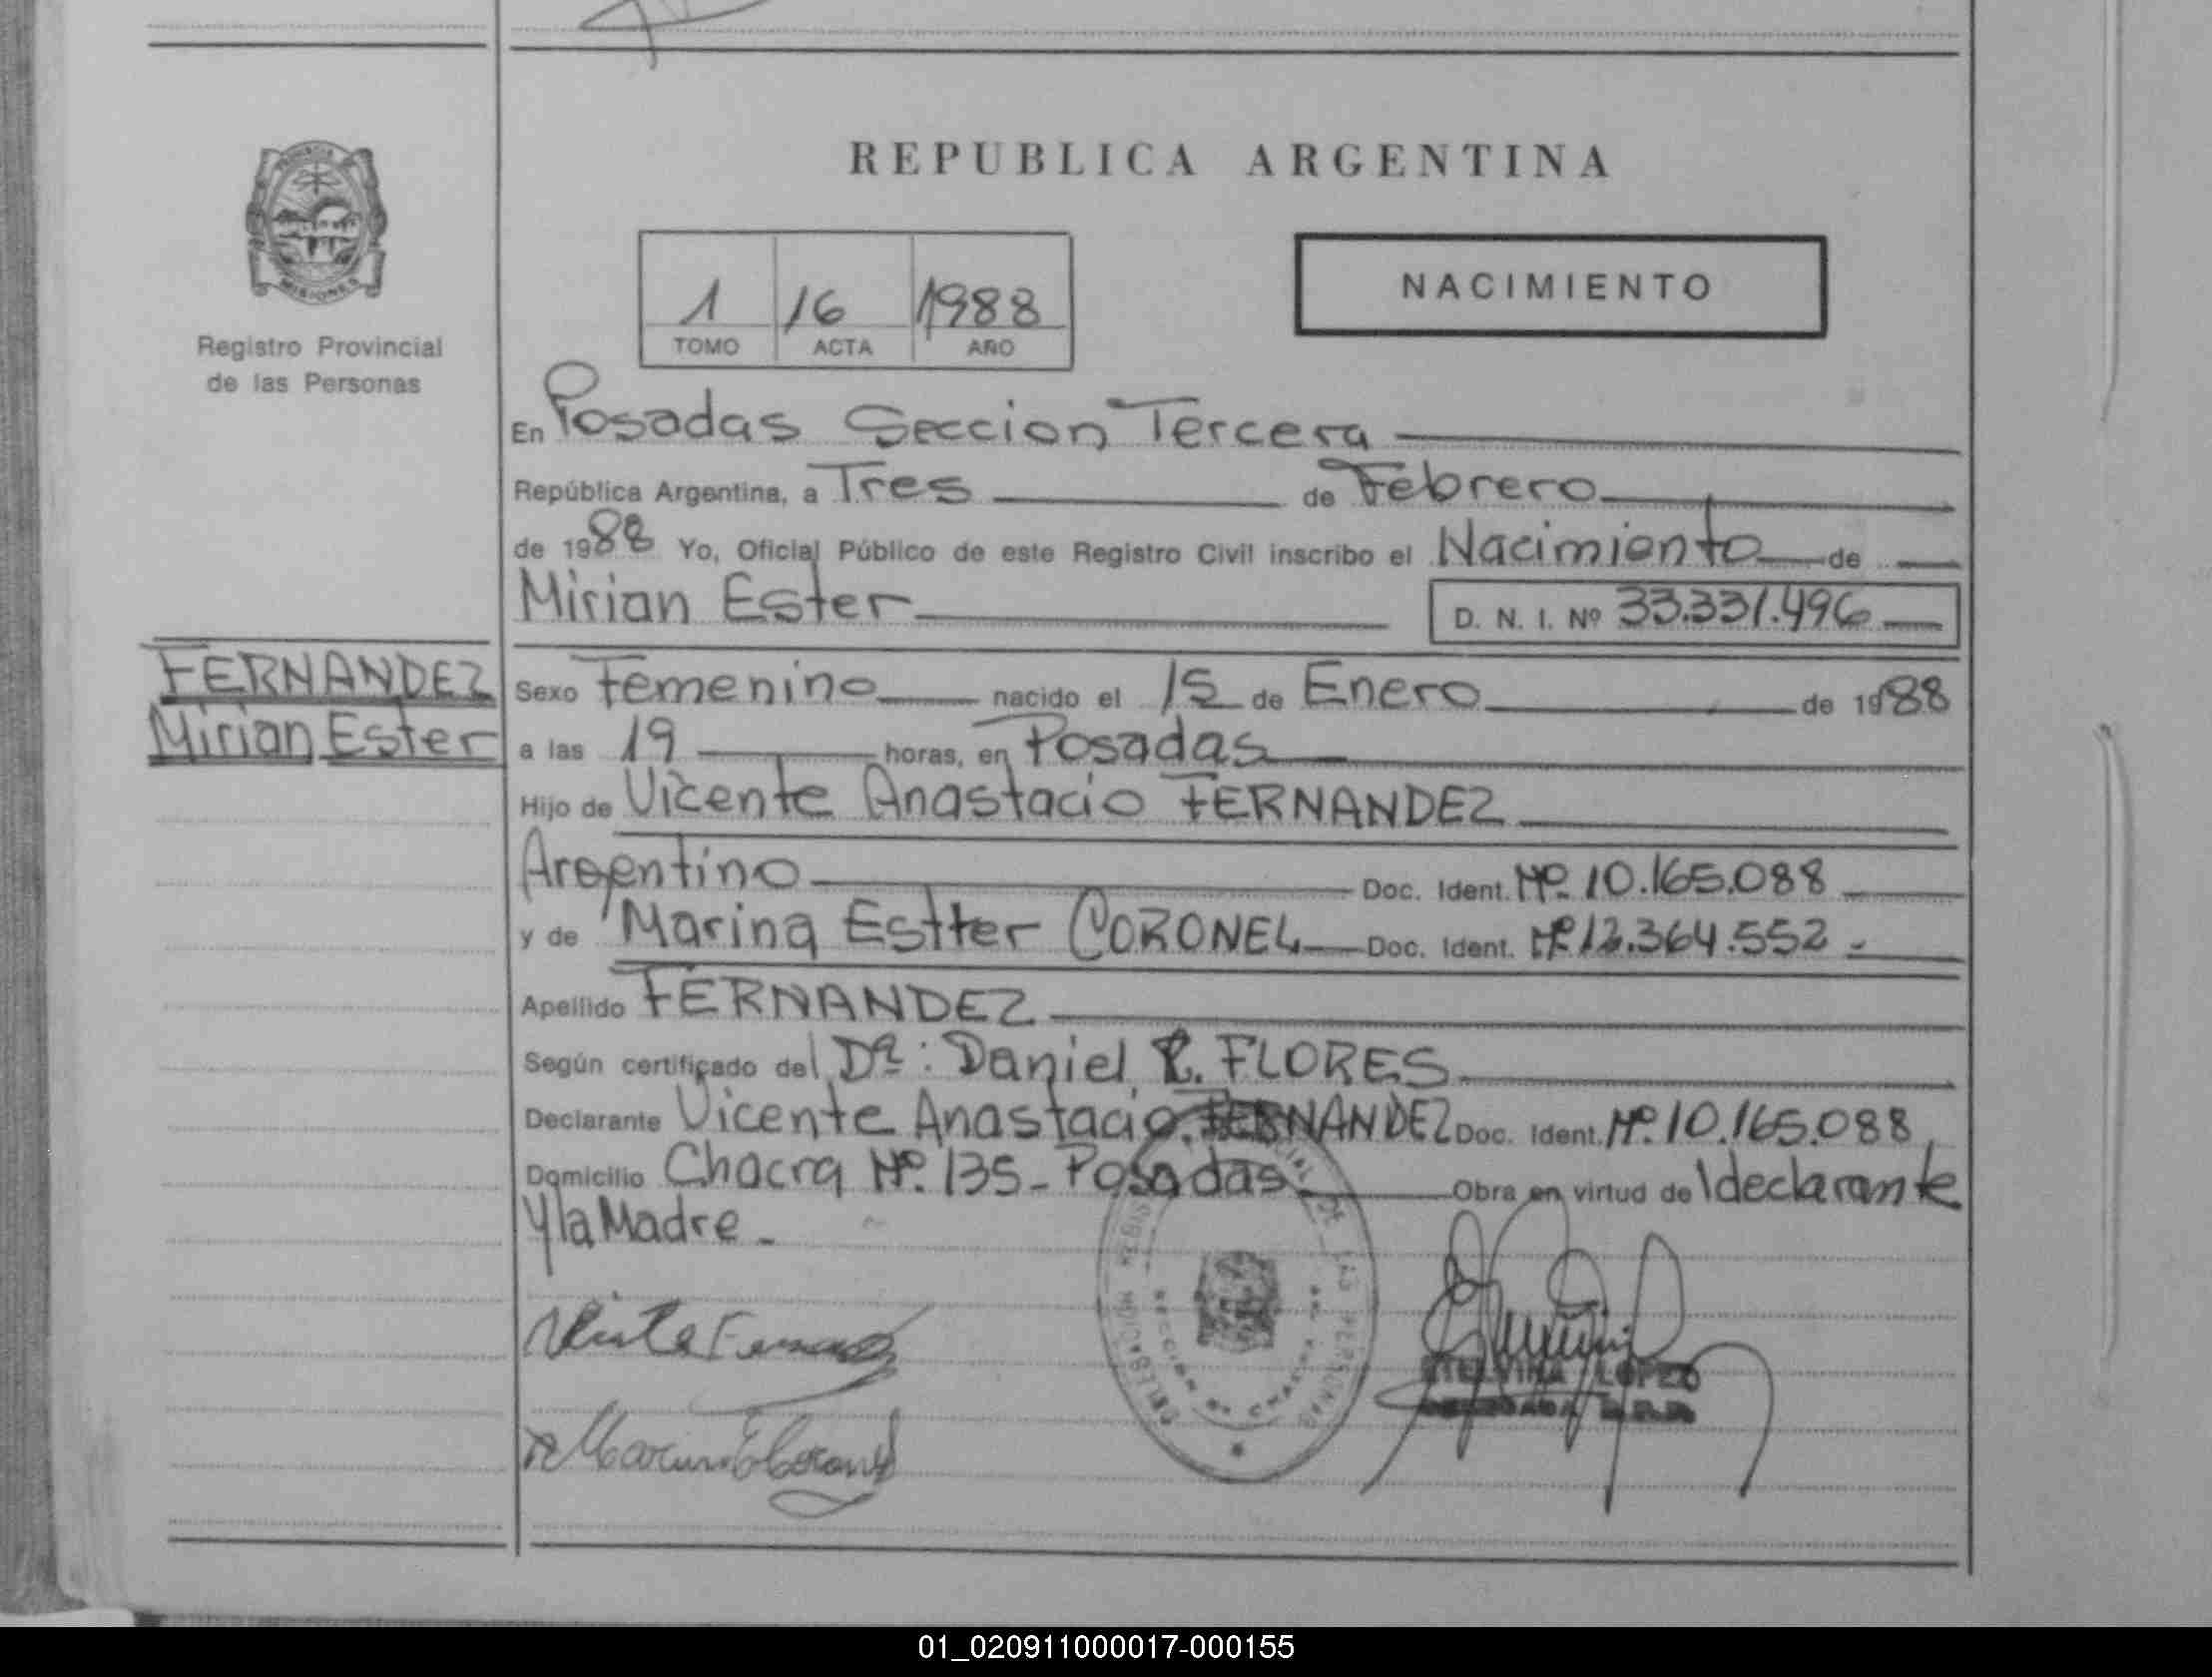 REPUBLICA ARGENTINA
MISIONES
Registro Provincial
de las Personas
1 16 1988
TOMO ACTA AÑO
NACIMIENTO
En Posadas Seccion Tercera
República Argentina, a Tres de Febrero
de 1988 Yo, Oficial Público de este Registro Civil inscribo el Nacimiento de
Mirian Ester D. N. I. Nº 33.331.496
FERNANDEZ
Mirian Ester
Sexo Femenino nacido el 15 de Enero de 1988
a las 19 horas, en Posadas
Hijo de Vicente Anastacio FERNANDEZ
Argentino Doc. Ident. Nº 10.165.088
y de Marina Estter CORONEL Doc. Ident. Nº 12.364.552.-
Apellido FERNANDEZ
Según certificado del Dª: Daniel R. FLORES
Declarante Vicente Anastacio FERNANDEZ Doc. Ident. Nº 10.165.088
Domicilio Chacra Nº 135- Posadas Obra en virtud de l declarante
Y la Madre -
DE LAS PERSONAS
LOPEZ
01_020911000017-000155